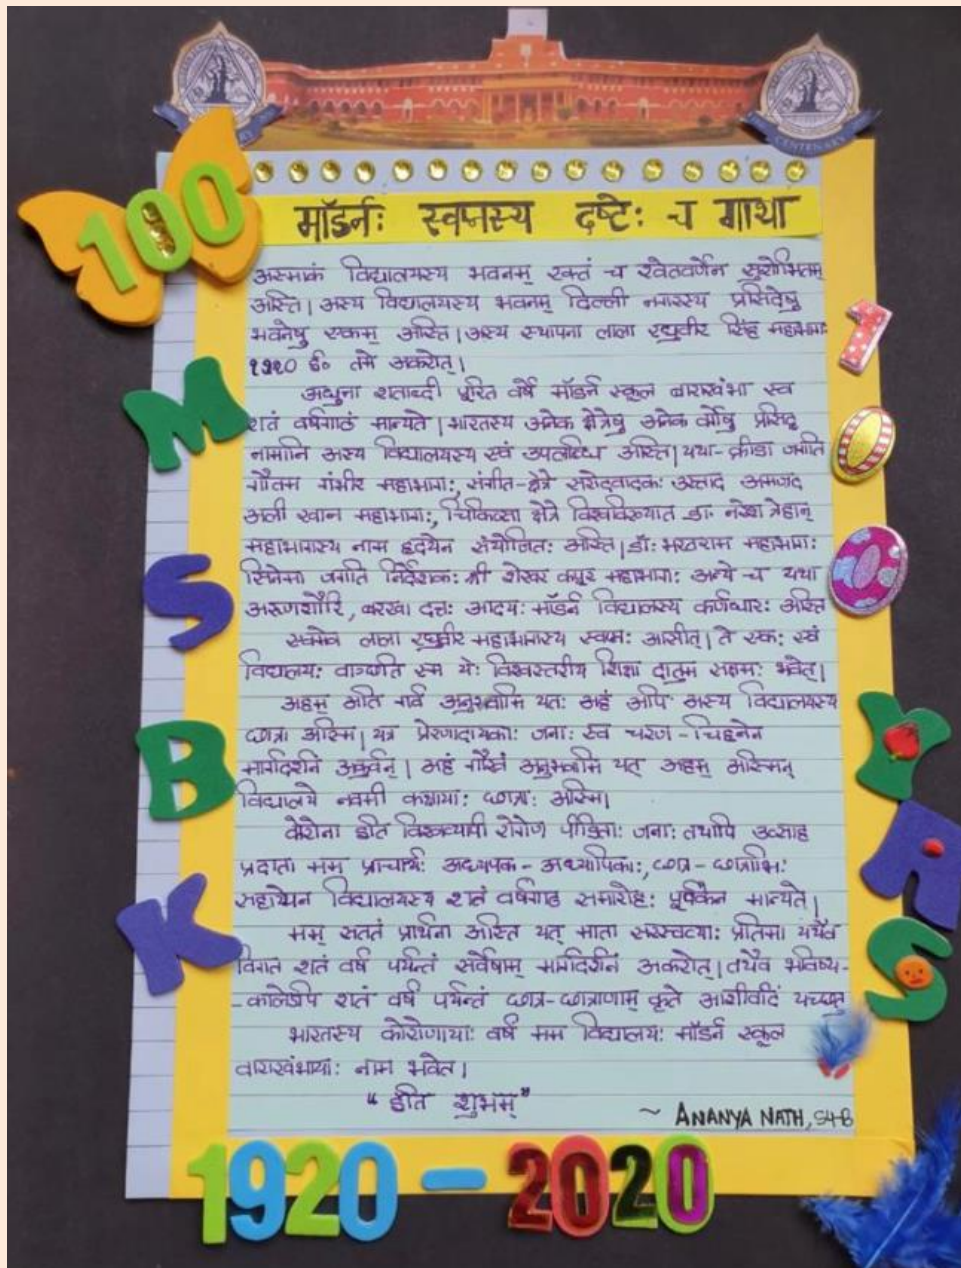 CENTENARY
100
मॉडर्नः स्वप्नस्य दृष्टेः च गाथा
अस्माकं विद्यालयस्य भवनम् रक्तं च श्वेतवर्णेन सुशोभितम्
अस्ति। अस्य विद्यालयस्य भवनम् दिल्ली नगरस्य प्रसिद्धेषु
भवनेषु एकम् अस्ति। अस्य स्थापना लाला रघुवीर सिंह महाभागः
१९२० ई० तमे अकरोत्।
अधुना शताब्दी पूरित वर्षे मॉडर्न स्कूल बाराखंभा स्व
शतं वर्षगाठं मान्यते। भारतस्य अनेक क्षेत्रेषु अनेक वर्गेषु प्रसिद्ध
नामानि अस्य विद्यालयस्य एवं उपलब्धि अस्ति। यथा-क्रीडा जगति
गौतम गंभीर महाभागः, संगीत-क्षेत्रे सरोदवादकः उस्ताद अमजद
अली खान महाभागः, चिकित्सा क्षेत्रे विश्वविख्यात डा. नरेश त्रेहान्
महाभागस्य नाम हृदयेन संयोजितः अस्ति। डॉः भरतराम महाभागः
सिनेमा जगति निर्देशकः श्री शेखर कपूर महाभागः अन्ये च यथा
अरुणशौरि, बरखा दत्तः आदयः मॉडर्न विद्यालस्य कर्णधारः अस्ति
एकमेव लाला रघुवीर महाभागस्य स्वप्नः आसीत्। ते एकः एवं
विद्यालयः वाञ्छति स्म येः विश्वस्तरीय शिक्षा दातुम सक्षमः भवेत्।
अहम् अति गर्व अनुभवामि यतः अहं अपि अस्य विद्यालयस्य
छात्रा अस्मि। यत्र प्रेरणादायकाः जनाः स्व चरण-चिह्नेन
मार्गदर्शनं अकुर्वन्। अहं गौरवं अनुभवामि यत् अहम् अस्मिन्
विद्यालये नवमी कक्षायाः छात्राः अस्मि।
कोरोना इति विश्वव्यापी रोगेण पीडिताः जनाः तथापि उत्साह
प्रदाता मम प्राचार्यः अध्यापक-अध्यापिकाः, छात्र-छात्राभिः
सहायेन विद्यालयस्य शतं वर्षगाठ समारोहः पूर्वकेन मान्यते।
मम् सततं प्रार्थना अस्ति यत् माता सरस्वत्याः प्रतिमा यथैव
विगत शतं वर्ष पर्यन्तं सर्वेषाम् मार्गदर्शनं अकरोत्। तथैव भविष्य-
-कालेऽपि शतं वर्ष पर्यन्तं छात्र-छात्राणाम् कृते आशीर्वादं यच्छतु
भारतस्य कोरोणायां वर्षे मम विद्यालयः मॉडर्न स्कूल
बाराखंभायाः नाम भवेत।
"इति शुभम्"
~ ANANYA NATH, S4-B
M
S
B
K
100
YRS
1920-2020